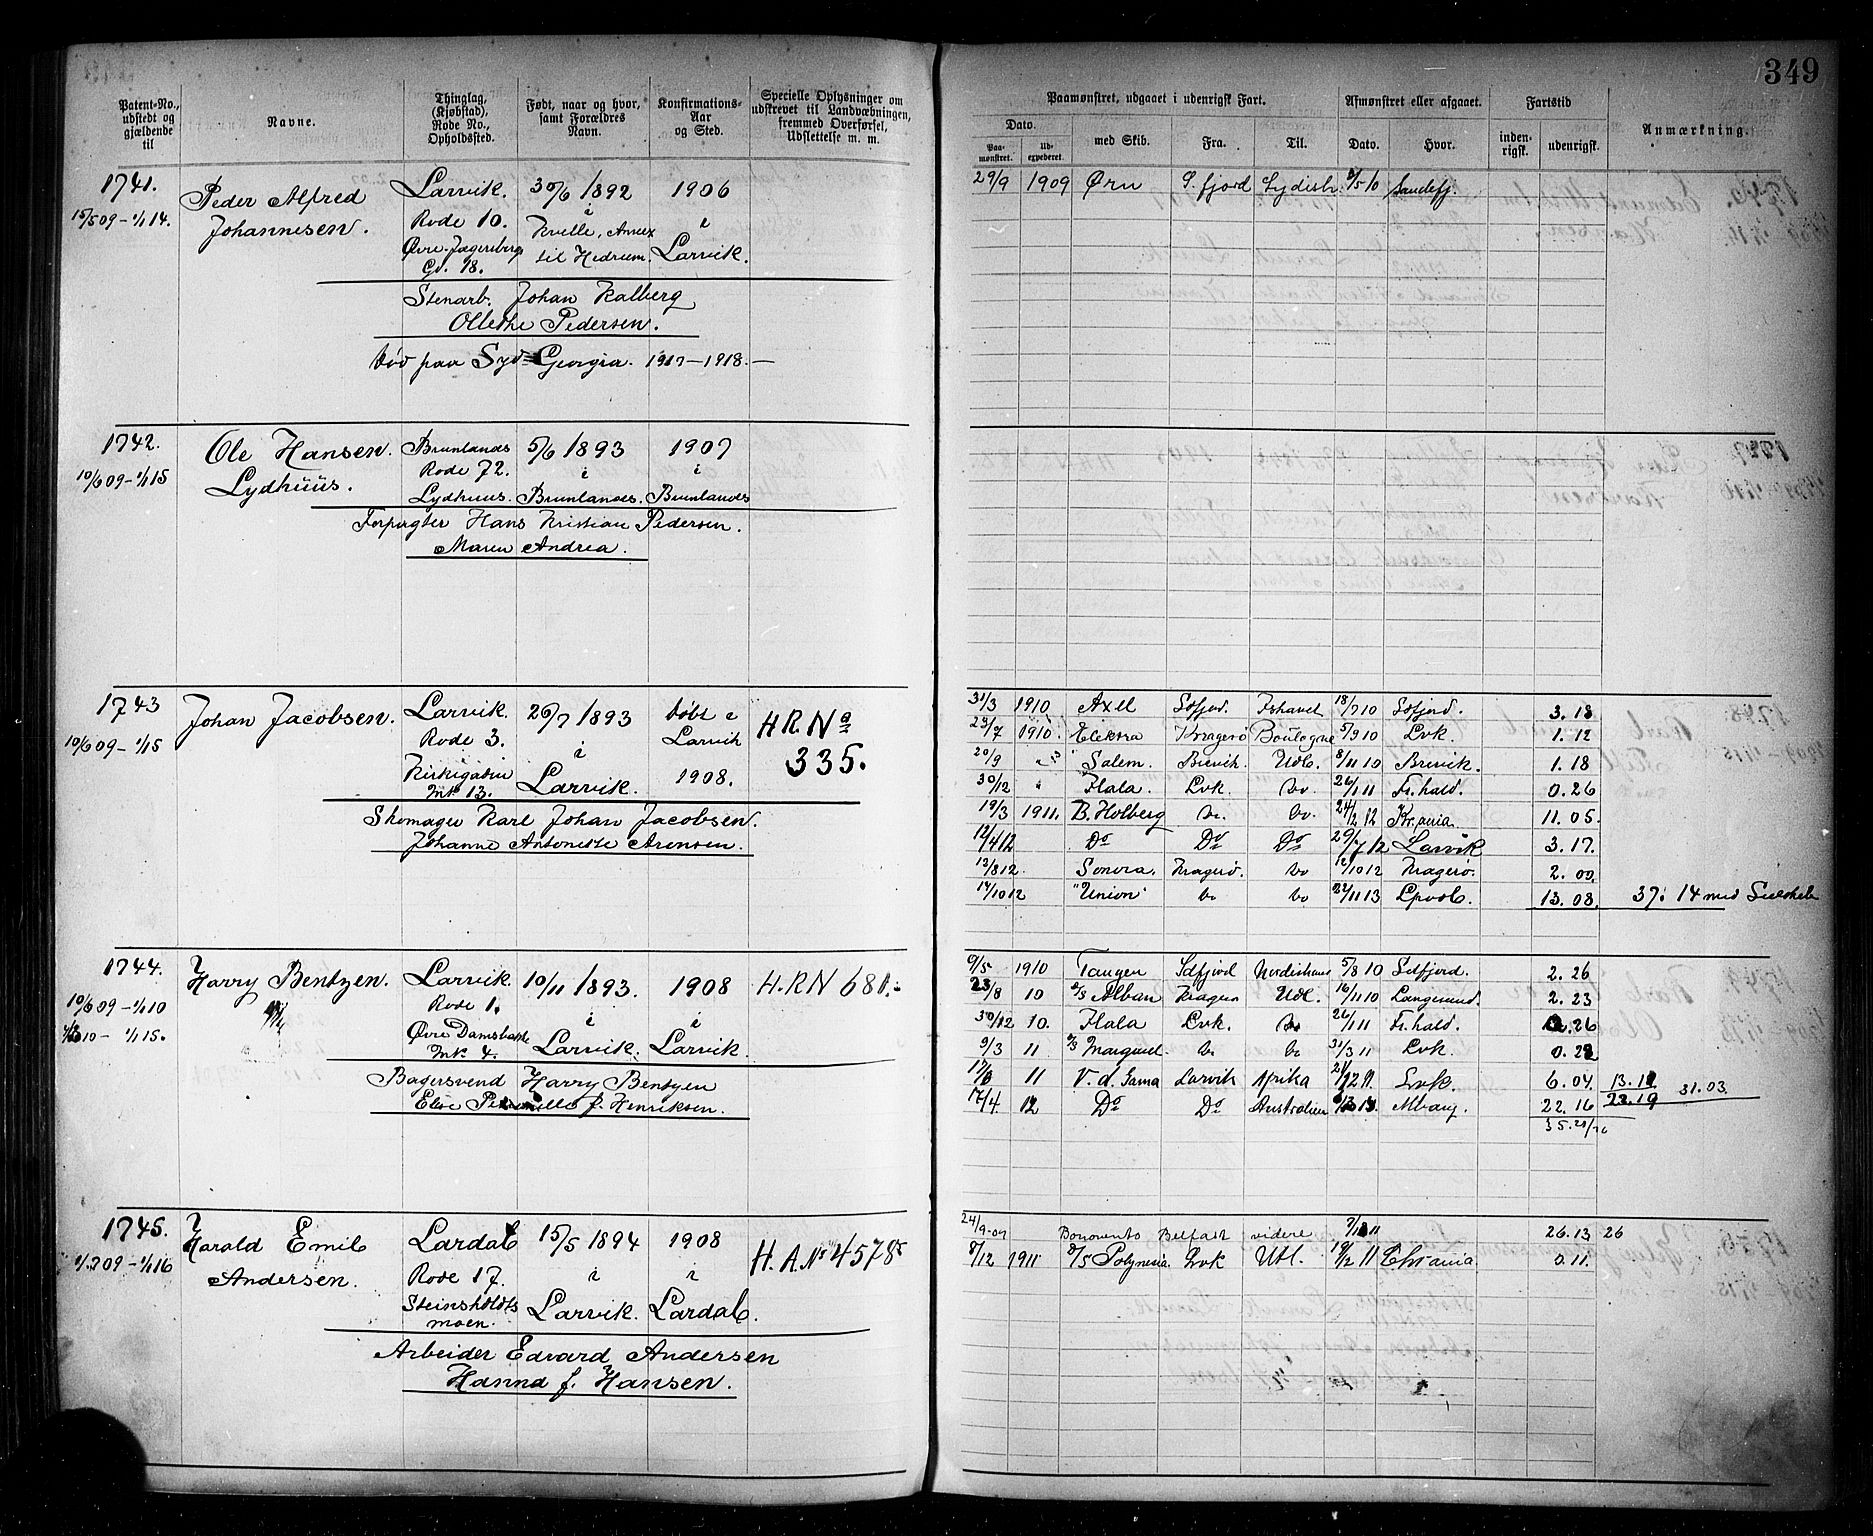 349
Patent-No., udstedt og gjældende til
Navne.
Thinglag, (Kjøbstad), Rode No., Opholdssted.
Født, naar og hvor, samt Forældres Navn.
Konfirmations-Aar og Sted.
Specielle Oplysninger om udskrevet til Landvæbningen, fremmed Overførsel, Udslettelse m. m.
Paamønstret, udgaaet i udenrigsk Fart.
Afmønstret eller afgaaet.
Fartstid
Anmærkning.
Dato.
Paa-mønstret.
Ud-expederet.
med Skib.
Fra.
Til.
Dato.
Hvor.
inden-rigsk.
udenrigsk.
1741. Peder Alfred Larvik. 30/6 1892 1906
15/5 09 - 1/1 14. Johannesen. Rode 10. i i
Øvre Jegersberg Kvelle, Annex Larvik.
Gd. 18. til Hedrum.
Stenarb. Johan Kalberg
Ollethe Pedersen.
død paa Syd-Georgia. 1917-1918.-
29/9 1909 Ørn S. fjord Sydish. /5 10 Sandefj.
1742. Ole Hansen. Brunlands 5/6 1893 1907
10/6 09 - 1/1 15 Lydhuus. Rode 72. i i
Lydhuus. Brunlandes. Brunlandes
Forpagter Hans Kristian Pedersen.
Maren Andrea.
1743 Johan Jacobsen. Larvik. 26/7 1893 døbt i H.R.No
10/6 09 - 1/1 15 Rode 3. i Larvik 335.
Kirkigaten Larvik. 1908.
Mk 13.
Skomager Karl Johan Jacobsen.
Johanne Antonette Arensen.
31/3 1910 Axel Sdfjord. Ishavet 18/7 10 Sdfjord. 3. 18
23/7 1910. Elektra Kragerö Boulogne 5/9 10 Lvk. 1. 12
20/9 Salem. Brevik Udl. 8/11 10 Brevik. 1. 18
30/12 Hala. Lvk. do 26/1 11 Fr.hald. 0. 26
19/3 1911. B. Holberg do. do. 24/2 12 Kr.ania. 11. 05.
12/4 12 Do Do Do 29/7 12 Larvik 3. 17.
12/8 12. Sonora. Kragerö. do 12/10 12 Kragerö. 2. 00.
14/10 12 "Union" do do 22/11 13 Lpool. 13. 08. 37: 14 med Seilskib
1744. Harry Bentzen. Larvik. 10/11 1893. 1908 H.RN 681.
10/6 09 - 1/1 10 Rode 1. i i
10 - 1/1 15. Øvre Damsbakke Larvik. Larvik.
Mk. 4.
Bagersvend Harry Bentzen
Elise Pernille f. Henriksen.
9/5 1910 Tangen Sdfjord Nordishavet 5/8 10 Sdfjord. 2. 26
23/8 10 Alban Kragerø Udl. 16/11 10 Langesund. 2. 23
30/12 10. Hala Lvk. do 26/1 11 Fr.hald. 26
9/3 11 Margred. do do 31/3 11 Lvk. 0. 22
17/8 11 V. d. Gama Larvik Afrika 12 11. Lvk. 6. 04. 13. 11
17/4. 12 Do Do Australien 13 Mbang. 22. 16 23. 19 31.03.
35.
1745. Harald Emil Lardal 15/5 1894 1908 H. A. No 4578
09 - 1/1 16 Andersen. Rode 17. i i
Steinsholdts Larvik. Lardal.
moen.
Arbeider Edvard Andersen
Hanna f. Hansen.
24/9-09 Bonovento Belfast videre 11 26. 13 26
8/12 1911 S/S Polynesia Lvk Utl. 19/2 11 Chrania 0.11.